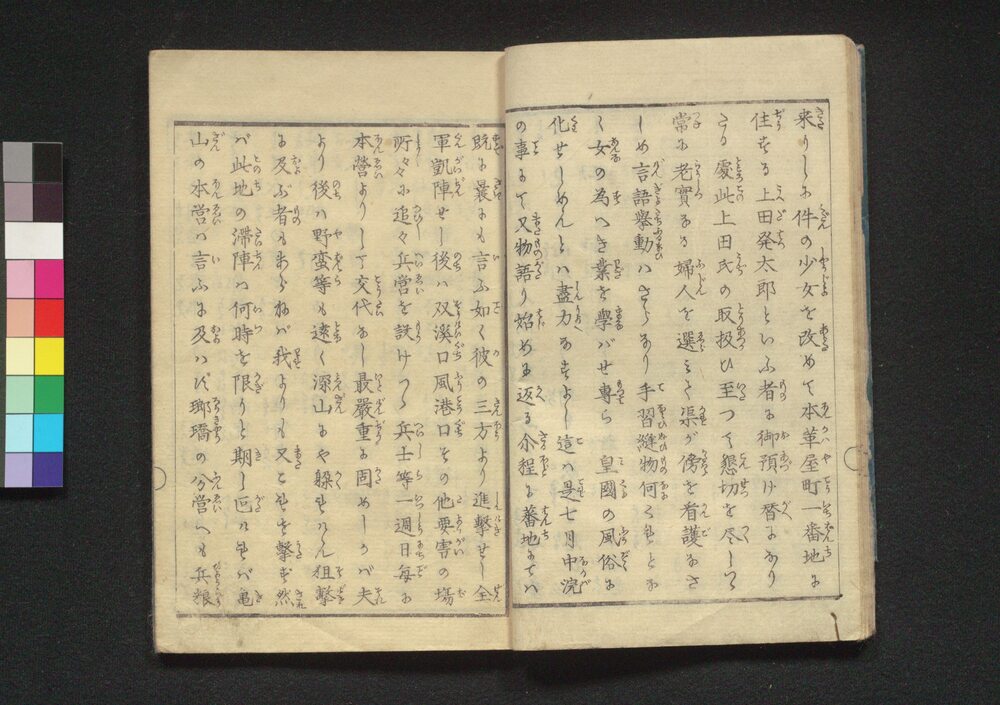 来りしに件の少女を改めて本革屋町一番地に
住する上田発太郎といふ者に御預け替になり
さる処此上田氏の取扱ひ至つて懇切を尽しつゝ
常に老實なる婦人を選みて渠が傍を看護なさ
しめ言語擧動ハさらなり手習縫物何くれとな
く女の為べき業を學バせ専ら皇國の風俗に
化せしめんとハ盡力なすよし這ハ是七月中浣
の事にて又物語り始めに返る尒程に蕃地にてハ
既に曩にも言ふ如く彼の三方より進撃せし全
軍凱陣せし後ハ双溪口風港口その他要害の場
所々々に追々兵営を設けつゝ兵士等一週日毎に
本營よりして交代なし最嚴重に固めしかバ夫
より後ハ野蛮等も遠く深山にや躱れけん狙撃
に及ぶ者も非らねバ我よりも又これを撃ず然
れバ此地の滞陣ハ何時を限りと期し叵けれバ亀
山の本営ハ言ふに及バず瑯璚の分営へも兵粮